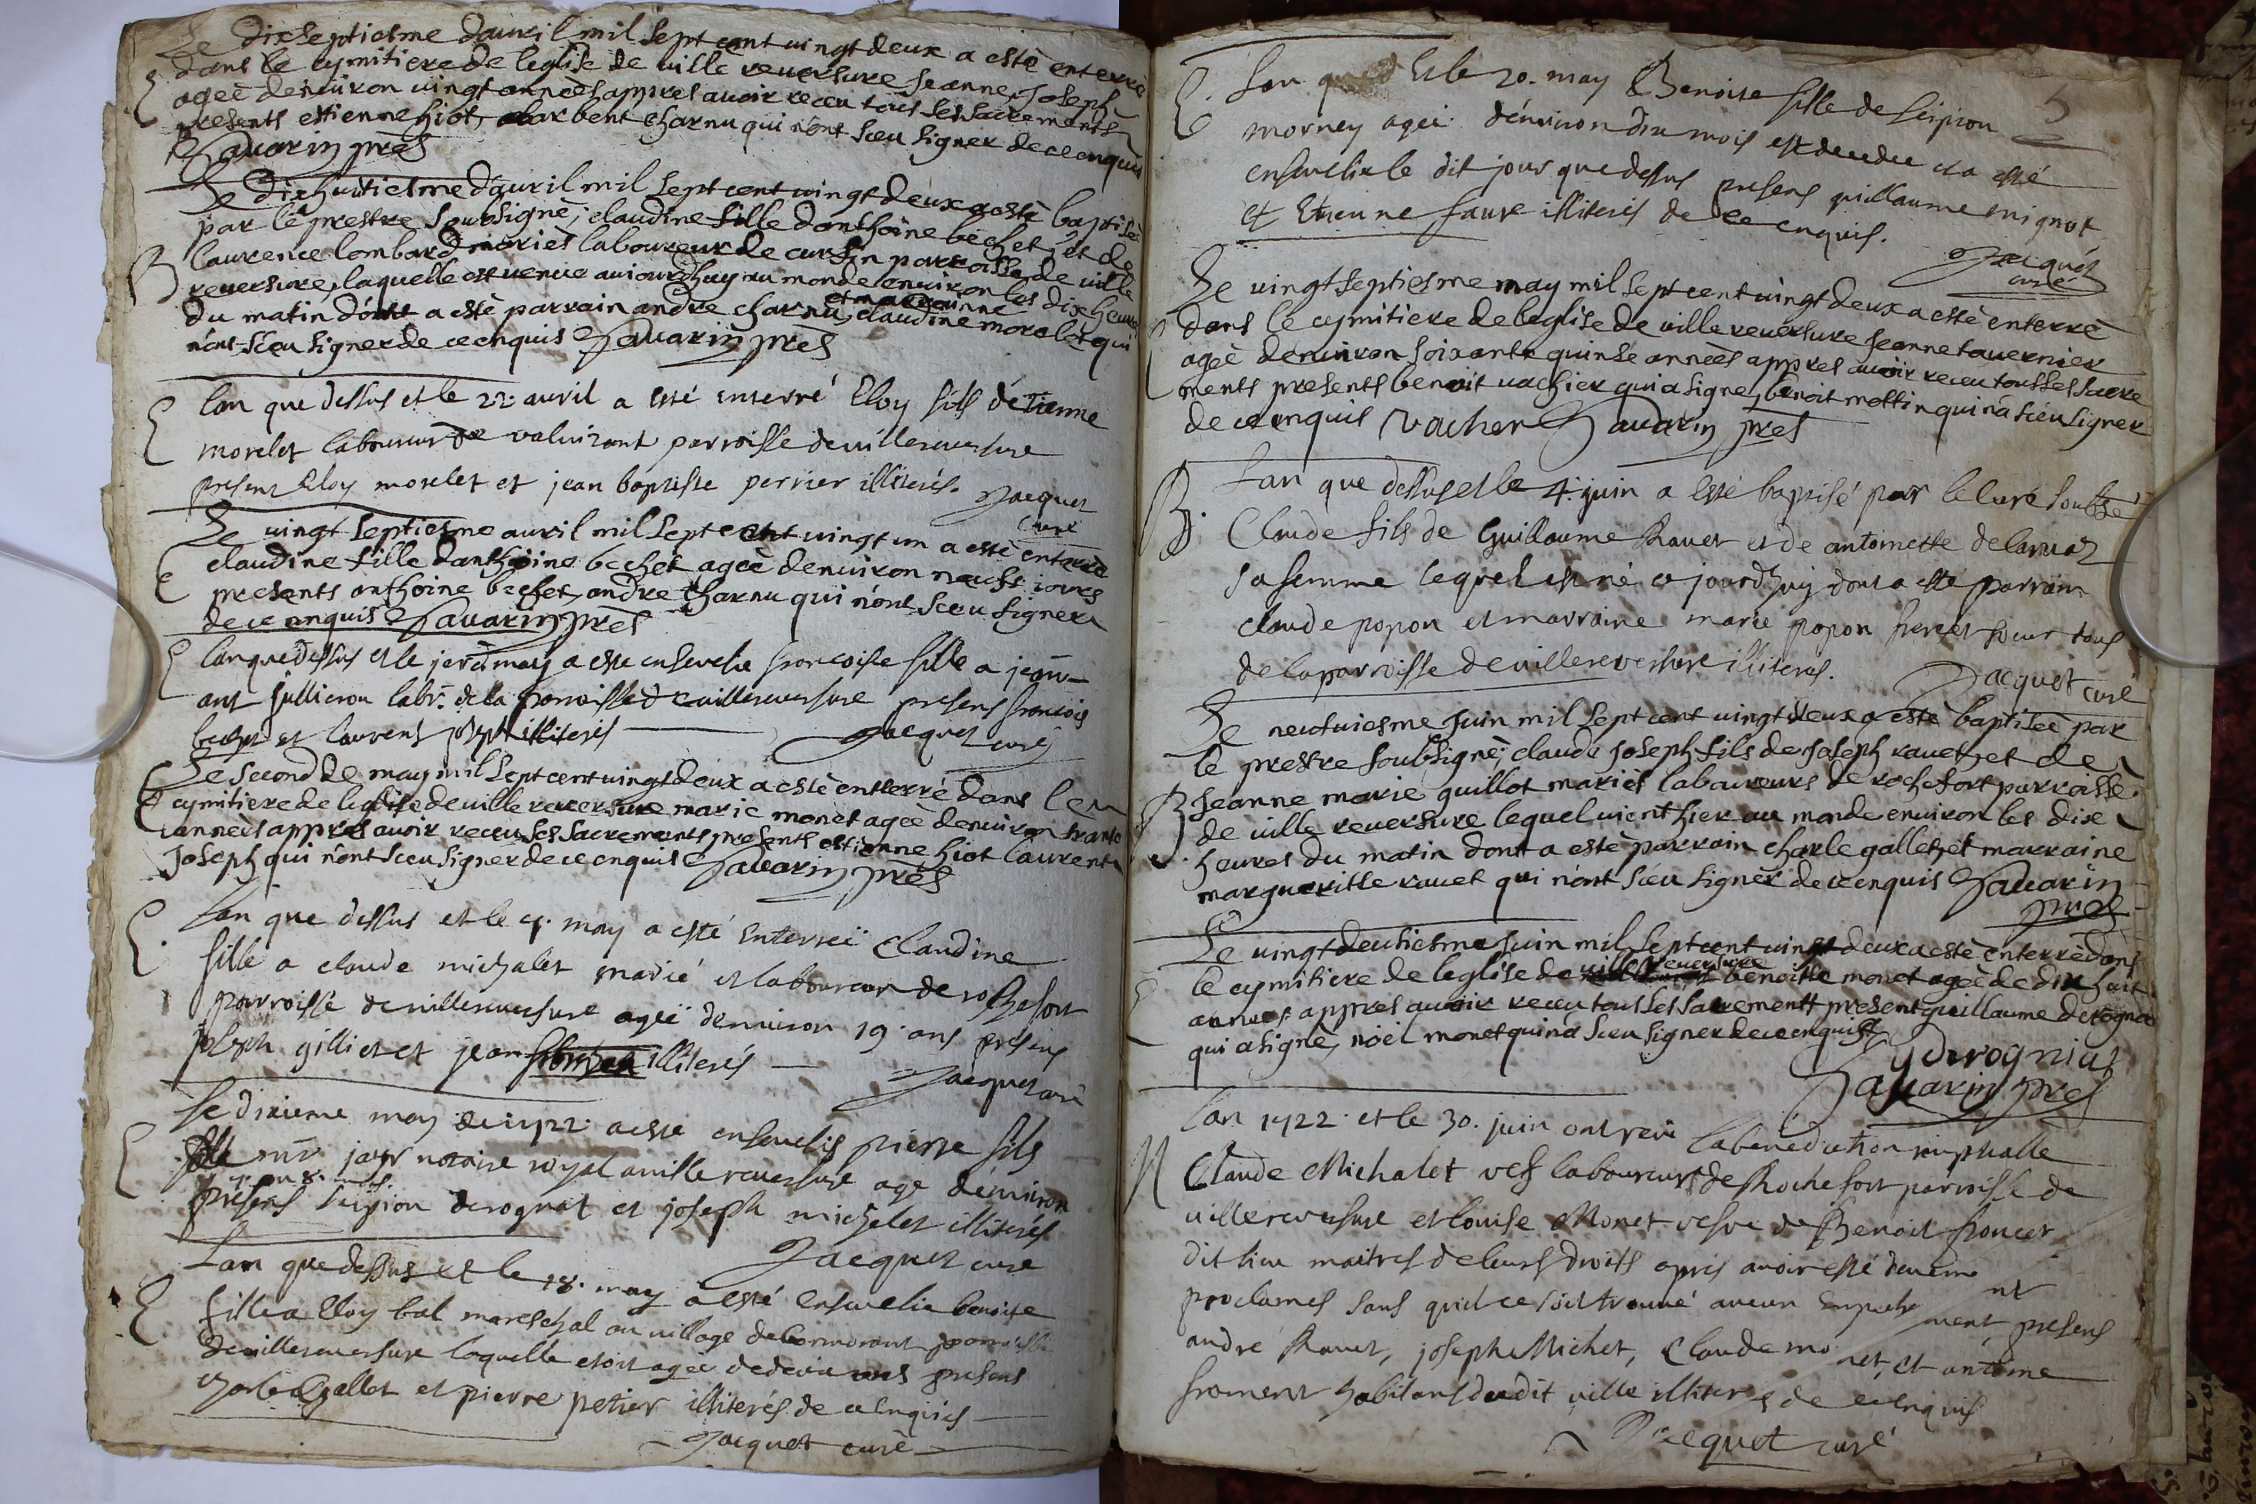 Le dixseptiesme d'auril mil sept cent vingt deux a estè enterrè
E dans le cymitiere de leglise de ville reuersure Jeanne Joseph
ageè denuiron vingt anneés appres auoir receu tous les sacrements
presents estienne hiot, charnu qui n'ont sceu signer de ce enquis
Sauarin pres
Le Dixhuitiesme d'auril mil sept cent vingt deux a estè baptiseè
par le prestre soubsignè, claudine fille d'anthoine bechet, et de
B laurence lombard mariès laboureur de cursin parroisse de ville
reuersure, laquelle est venue auiourdhuy au monde enuiron les dix heures
du matin dont a estè parrain andre charnu, et marrainne claudine morelet qui
n'ont sceu signer de ce enquis Sauarin pres
E lan que dessus et le 22 auril a esté enterré Eloy fils détienne
morelet laboureur de valuirant parroisse de villereuersure
present Eloy morelet et jean baptiste perrier illiterés. Jacquet
curé
Le vingt septiesme auril mil sept cent vingt un a estè enterrè
E claudine fille danthoine bechet ageè denuiron neufs iours
presents anthoine bechet, andre charnu qui n'ont sceu signer
de ce enquis Sauarin pres
E lan que dessus et le may a esté enseuelie francoise fille a jean
ant jullieron labr. de la parroisse de villereuersure presens francois
bechet et laurens joseph illiterés Jacquet curé
Le second de may mil sept cent vingt deux a estè enterré dans le
E cymitiere de leglise de ville reuersure marie monet ageè denuiron trante
anneés appres auoir receu ses sacrements, presents estienne hiot laurent
Joseph qui n'ont sceu signer de ce enquis Sauarin pres
E. Lan que dessus et le may a esté enterreé Claudine
fille a claude michalet marié et laboureur de rochefort
parroisse de villereuersure ageé denuiron 19 ans presens
joseph gilliet et jean illiterés
Jacquet curé
E Le dixieme may 1722 a esté enseuelis pierre fils
de mr jayr notaire royal a ville reuersure age denuiron
presens scipion derognat et joseph michelet illiterés
Jacquet curé
E. Lan que dessus et le 18. may a esté enseuelie benoite
fille a Eloy bal mareschal au village de parroisse
de villereuersure laquelle etoit agee de deux presens
charle gallet et pierre petier illiterés de ce enquis
Jacquet curé
E. Lan que Et le 20. may Benoite fille de scipion
morney ageé d'enuiron dix mois est decedee et a esté
enseuelie le dit jour que dessus presens guillaume mignot
et Etienne faure illiterés de ce enquis.
Jacquet
curé
Le vingt septiesme may mil sept cent vingt deux a estè enterrè
E dans le cymitiere de leglise de ville reuersure Jeanne tauernier
ageè denuiron soixante quinse anneés appres auoir receu tous ses sacre
ments presents benoit vachier qui a signe, benoit mottin qui n'a sceu signer
de ce enquis Vacher Sauarin pres
B. Lan que dessus et le 4. juin a esté baptisé par le curé soubsé
Claude fils de Guillaume Rauet et de antoinette delaruaz
sa femme lequel est né ce jourdhuy dont a esté parrain
claude popon et marraine marie popon frere et soeur tous
de la parroisse de villereuersure illiterés.
Jacquet curé
Le neufuiesme Juin mil sept cent vingt deux a estè baptiseè par
le prestre soubsignè, claude Joseph fils de Joseph rauet, et de
B Jeanne marie quillot mariés laboureurs de rochefort parroisse
de ville reuersure lequel vient hier au monde enuiron les dix
heures du matin dont a estè parrain charle gallet, et marraine
margueritte rauet qui n'ont sceu signer de ce enquis Sauarin
pres
Le vingt deuxiesme Juin mil sept cent vingt deux a estè enterrè dans
le cymitiere de leglise de ville reuersure benoitte monet ageè de dix huit
E annees appres auoir receu tous les sacrements present guillaume derognat
qui a signè, noël monet qui n'a sceu signer de ce enquis
g derogniat
Sauarin pres
Lan 1722. et le 30. juin ont receu la benediction nuptialle
M Claude Michalet vef laboureur de Rochefort parroisse de
villereuersure et Louise Monet vefue de Benoit froncer
dit lieu maitres de leurs droits aprés auoir esté deueme
nt
proclamés sans quil ce soit trouué aucun Empeche ment presens
andré Rauet, joseph Michet, Claude mo net, et antoine
froment habitans dudit ville illiterés de ce enquis
Jacquet curé